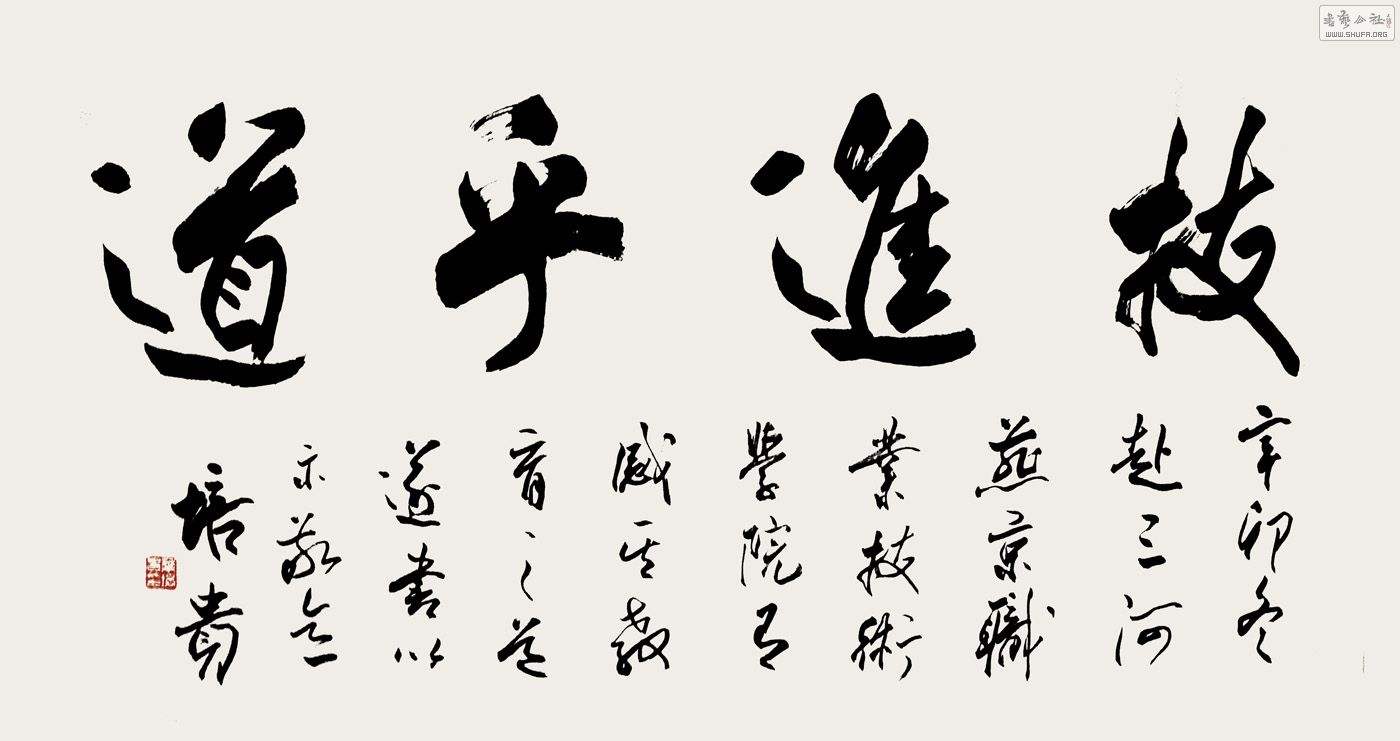 技進乎道
辛卯冬
赴三河
燕京職
業技術
學院有
感其教
育之道
遂書以
示敬意
培貴
書藝公社
WWW.SHUFA.ORG